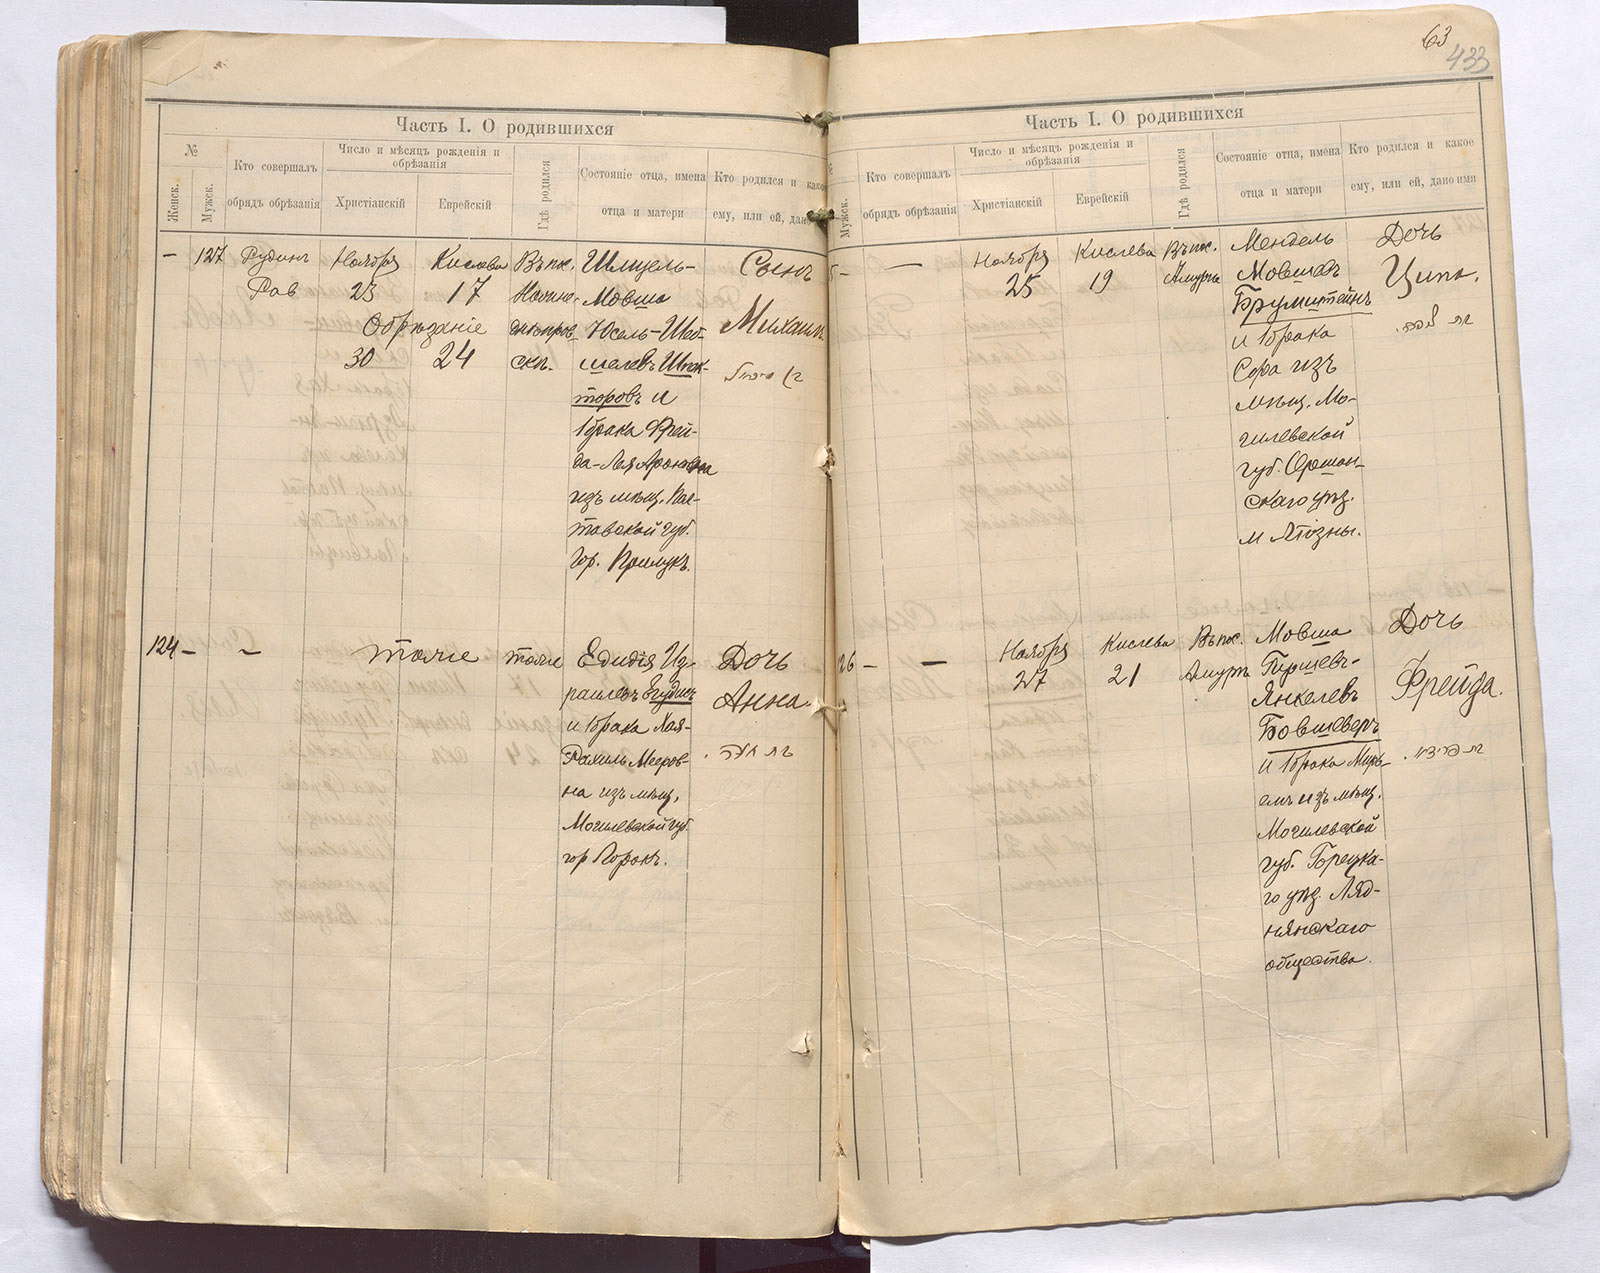 63
433
Часть I. О родившихся
№
Женск.
Мужск.
Кто совершалъ
обрядъ обрѣзанія
Число и мѣсяцъ рожденія и
обрѣзанія
Христіанскій
Еврейскій
Гдѣ родился
Состояніе отца, имена
отца и матери
Кто родился и какое
ему, или ей, дано
– 127
Рудинъ
Рав
Ноября
23
Кислева
17
Обрѣзаніе
30
24
Въ пос.
днѣпров
скъ.
Шмуель-
Мовша
Юсель-
шелевъ Шпек-
торовъ и
1 брака Фрей-
да-Лея Ароновна
изъ мѣщ. Пол-
тавской губ.
гор. Прилукъ.
Сынъ
Михаилъ.
124 –
–
тоже
тоже
Едидія Из-
раилевъ
и 1 брака Хая-
Рахиль Мееров-
на изъ мѣщ.
Могилевской губ.
гор Горокъ.
Дочь
Анна.
בת חנה.
Часть I. О родившихся
№
Мужск.
Кто совершалъ
обрядъ обрѣзанія
Число и мѣсяцъ рожденія и
обрѣзанія
Христіанскій
Еврейскій
Гдѣ родился
Состояніе отца, имена
отца и матери
Кто родился и какое
ему, или ей, дано имя
5 –
—
Ноября
25
Кислева
19
Въ пос.
Амуръ
Мендель
Мовшевъ
Брумштейнъ
и 1 брака
Сора изъ
мѣщ. Мо-
гилевской
губ. Оршан-
скаго уѣз.
м Ліозны.
Дочь
Ципа.
בת ציפה.
26 –
—
Ноября
27
Кислева
21
Въ пос.
Амуръ
Мовша
Гиршевъ-
Янкелевъ
и 1 брака Мирь-
емъ изъ мѣщ.
Могилевской
губ. Горецка-
го уѣз. Ляд-
нянскаго
общества.
Дочь
Фрейда.
בת פריידא.